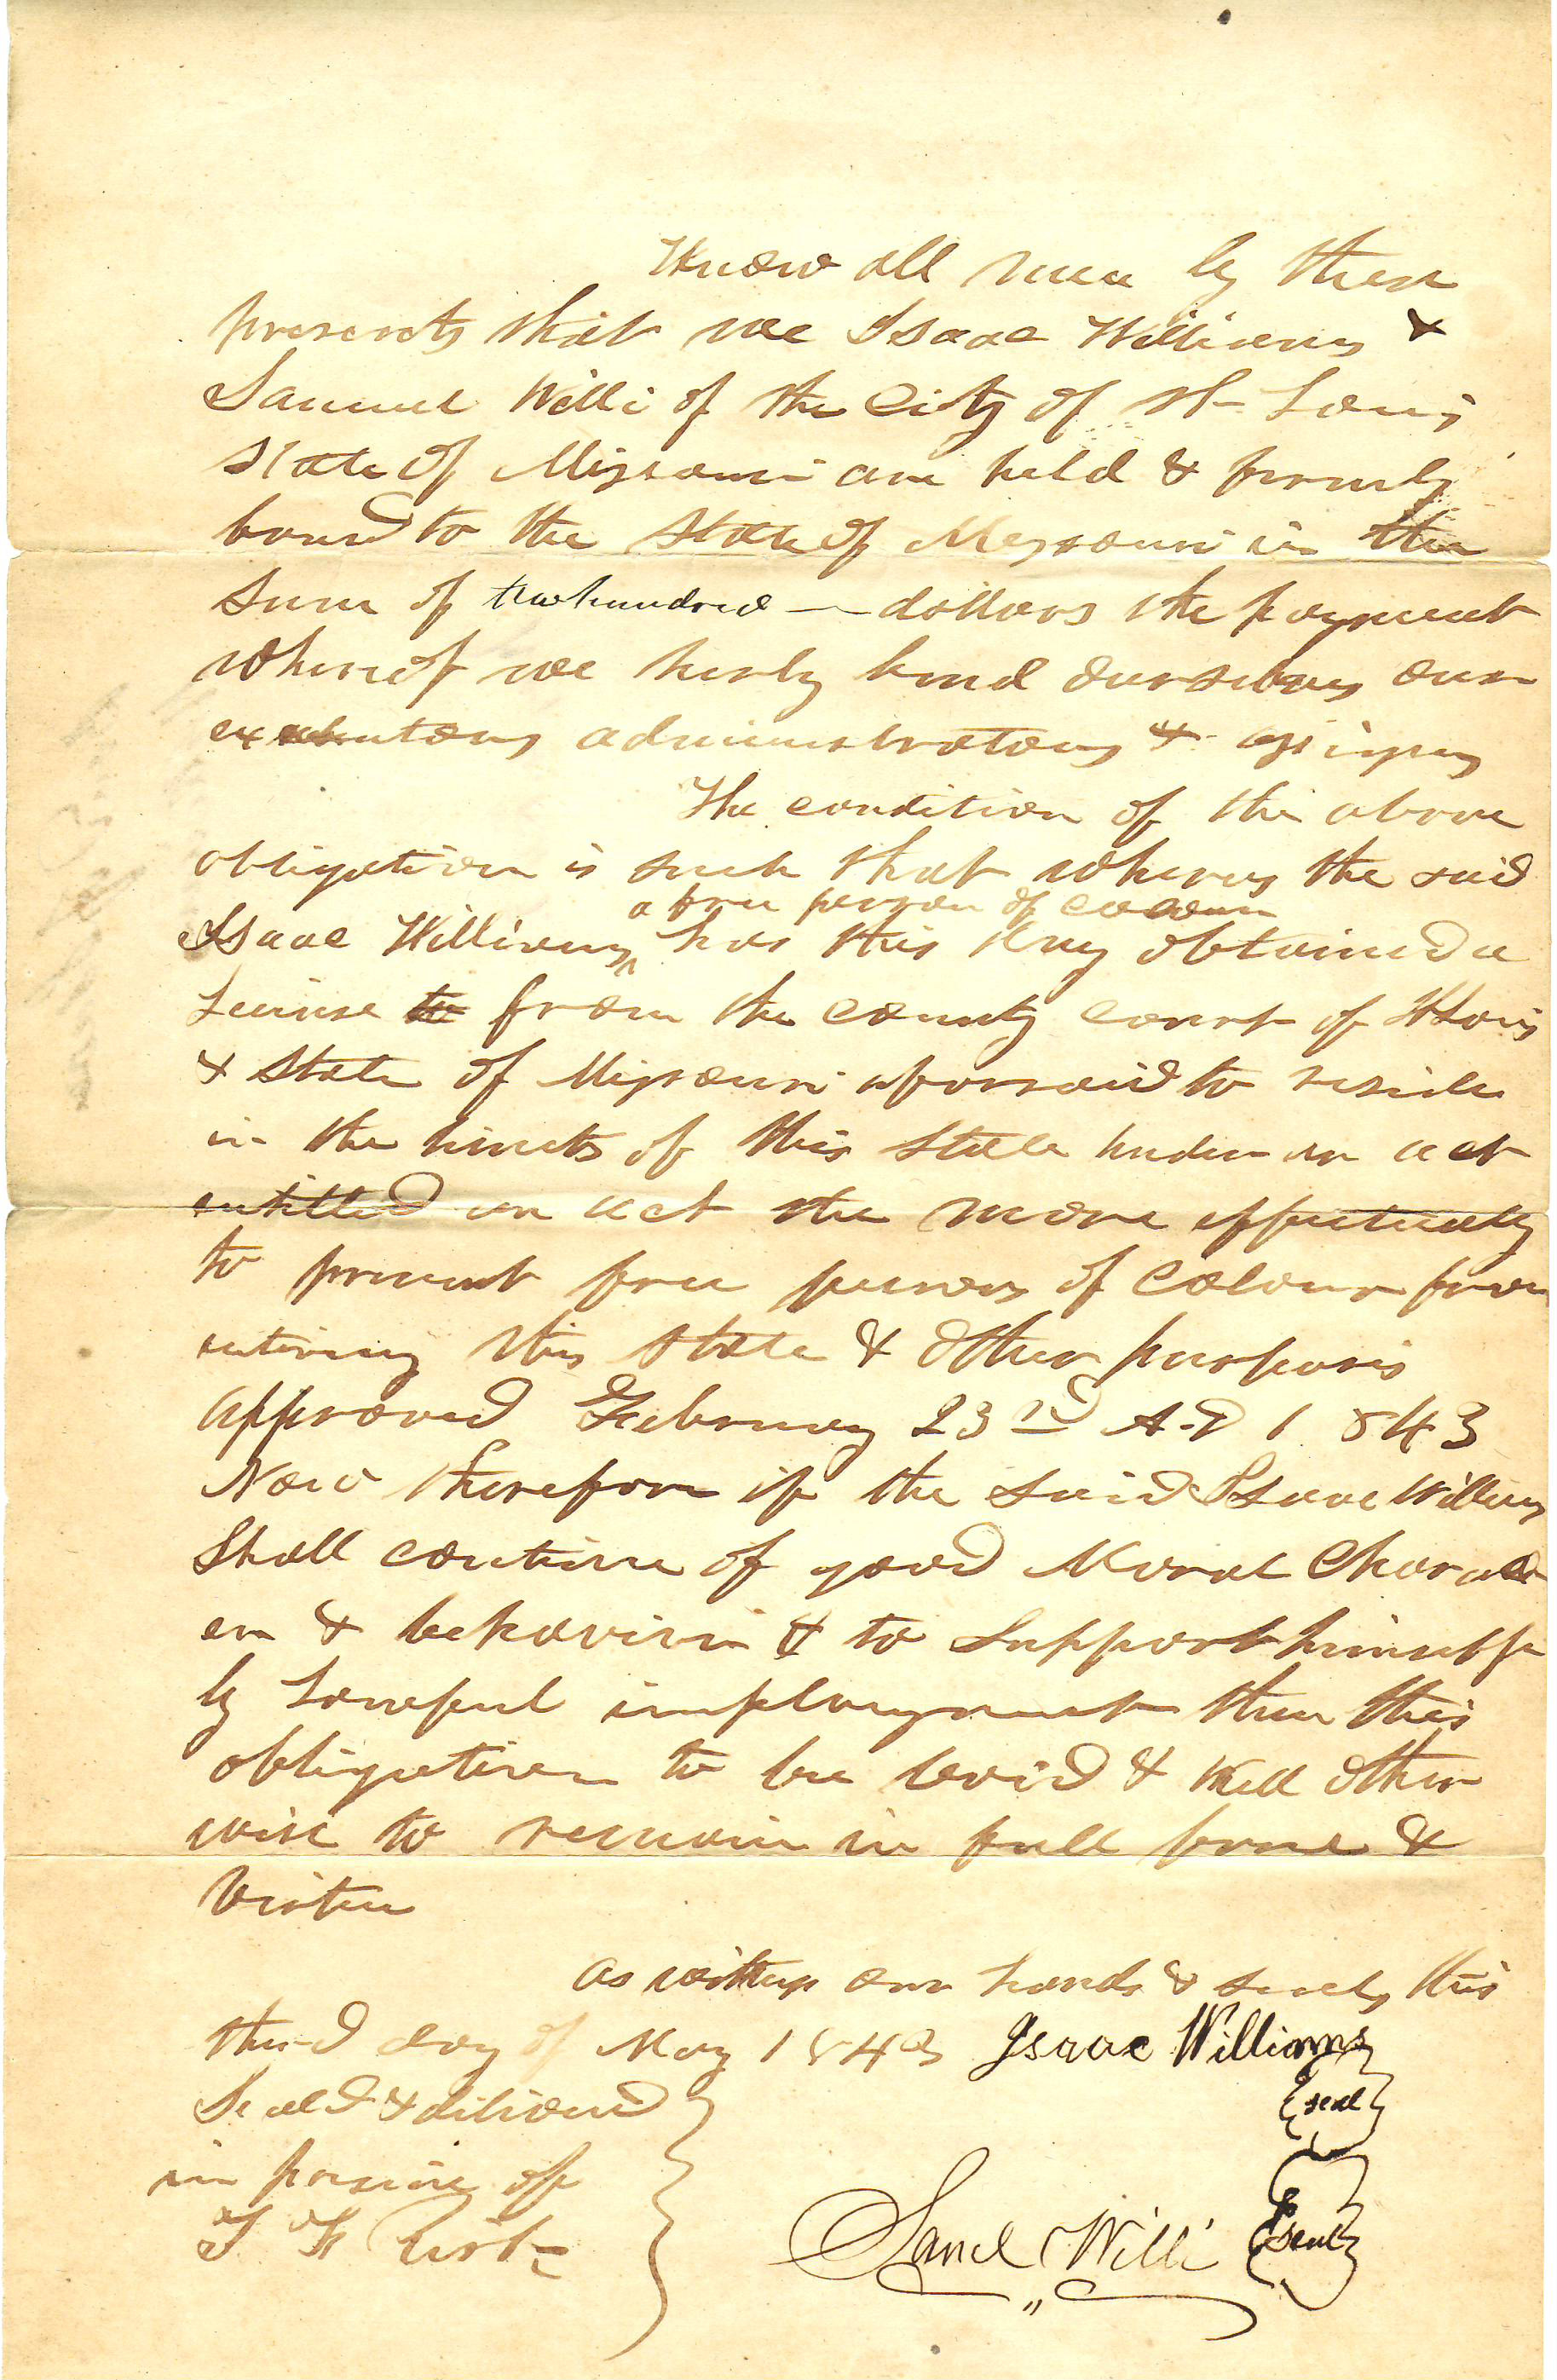 Know all men by these
presents that we Isaac Williams &
Samuel Willi of the City of St Louis
State of Missouri are held & firmly
bound to the State of Missouri in the
sum of two hundred — dollars the payment
whereof we herby bind ourselves our
executors administrators & assigns
The condition of the above
obligation is such that whereas the said
a free person of colour
Isaac Williams ^ has this day obtained a
Licinse to from the county court of St Louis
& State of Missouri aforesaid to reside
in the limits of this State under an act
entitled an act the more effectually
to prevent free persons of Colour from
entiring this State & other purposes
approved February 23rd A.D 1843
Now therefore if the said Isaac Williams
Shall continue of good Moral Charact
er & behavior & to Support himself
by Lawful imployment then this
obligation to be void & Null other
wise to remain in full force &
Virtue
as witness our hands & seals this
third day of May 1843 Isaac Williams
seal
Seald & delivered
in presence of
Saml Willi seal